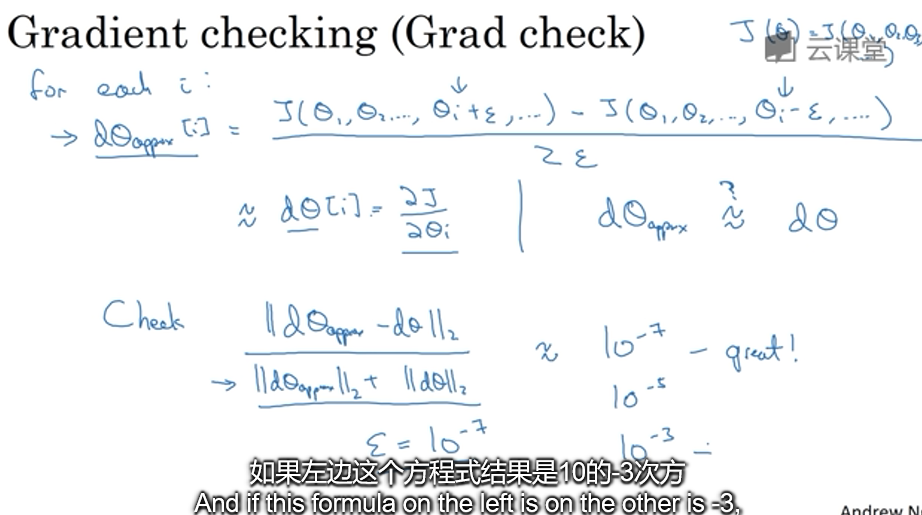 Gradient checking (Grad check)
J(θ) = J(θ₁, θ₂, θ₃
云课堂
for each i:
→ dθapprox[i] = J(θ₁, θ₂, ..., θi+ε, ...) - J(θ₁, θ₂, ..., θi-ε, ....)
2ε
≈ dθ[i] = ∂J/∂θi | dθapprox ≈? dθ
Check ‖dθapprox - dθ‖₂
→ ‖dθapprox‖₂ + ‖dθ‖₂
≈ 10⁻⁷ - great!
10⁻⁵
ε = 10⁻⁷ 10⁻³ -
如果左边这个方程式结果是10的-3次方
And if this formula on the left is on the other is -3,
Andrew N